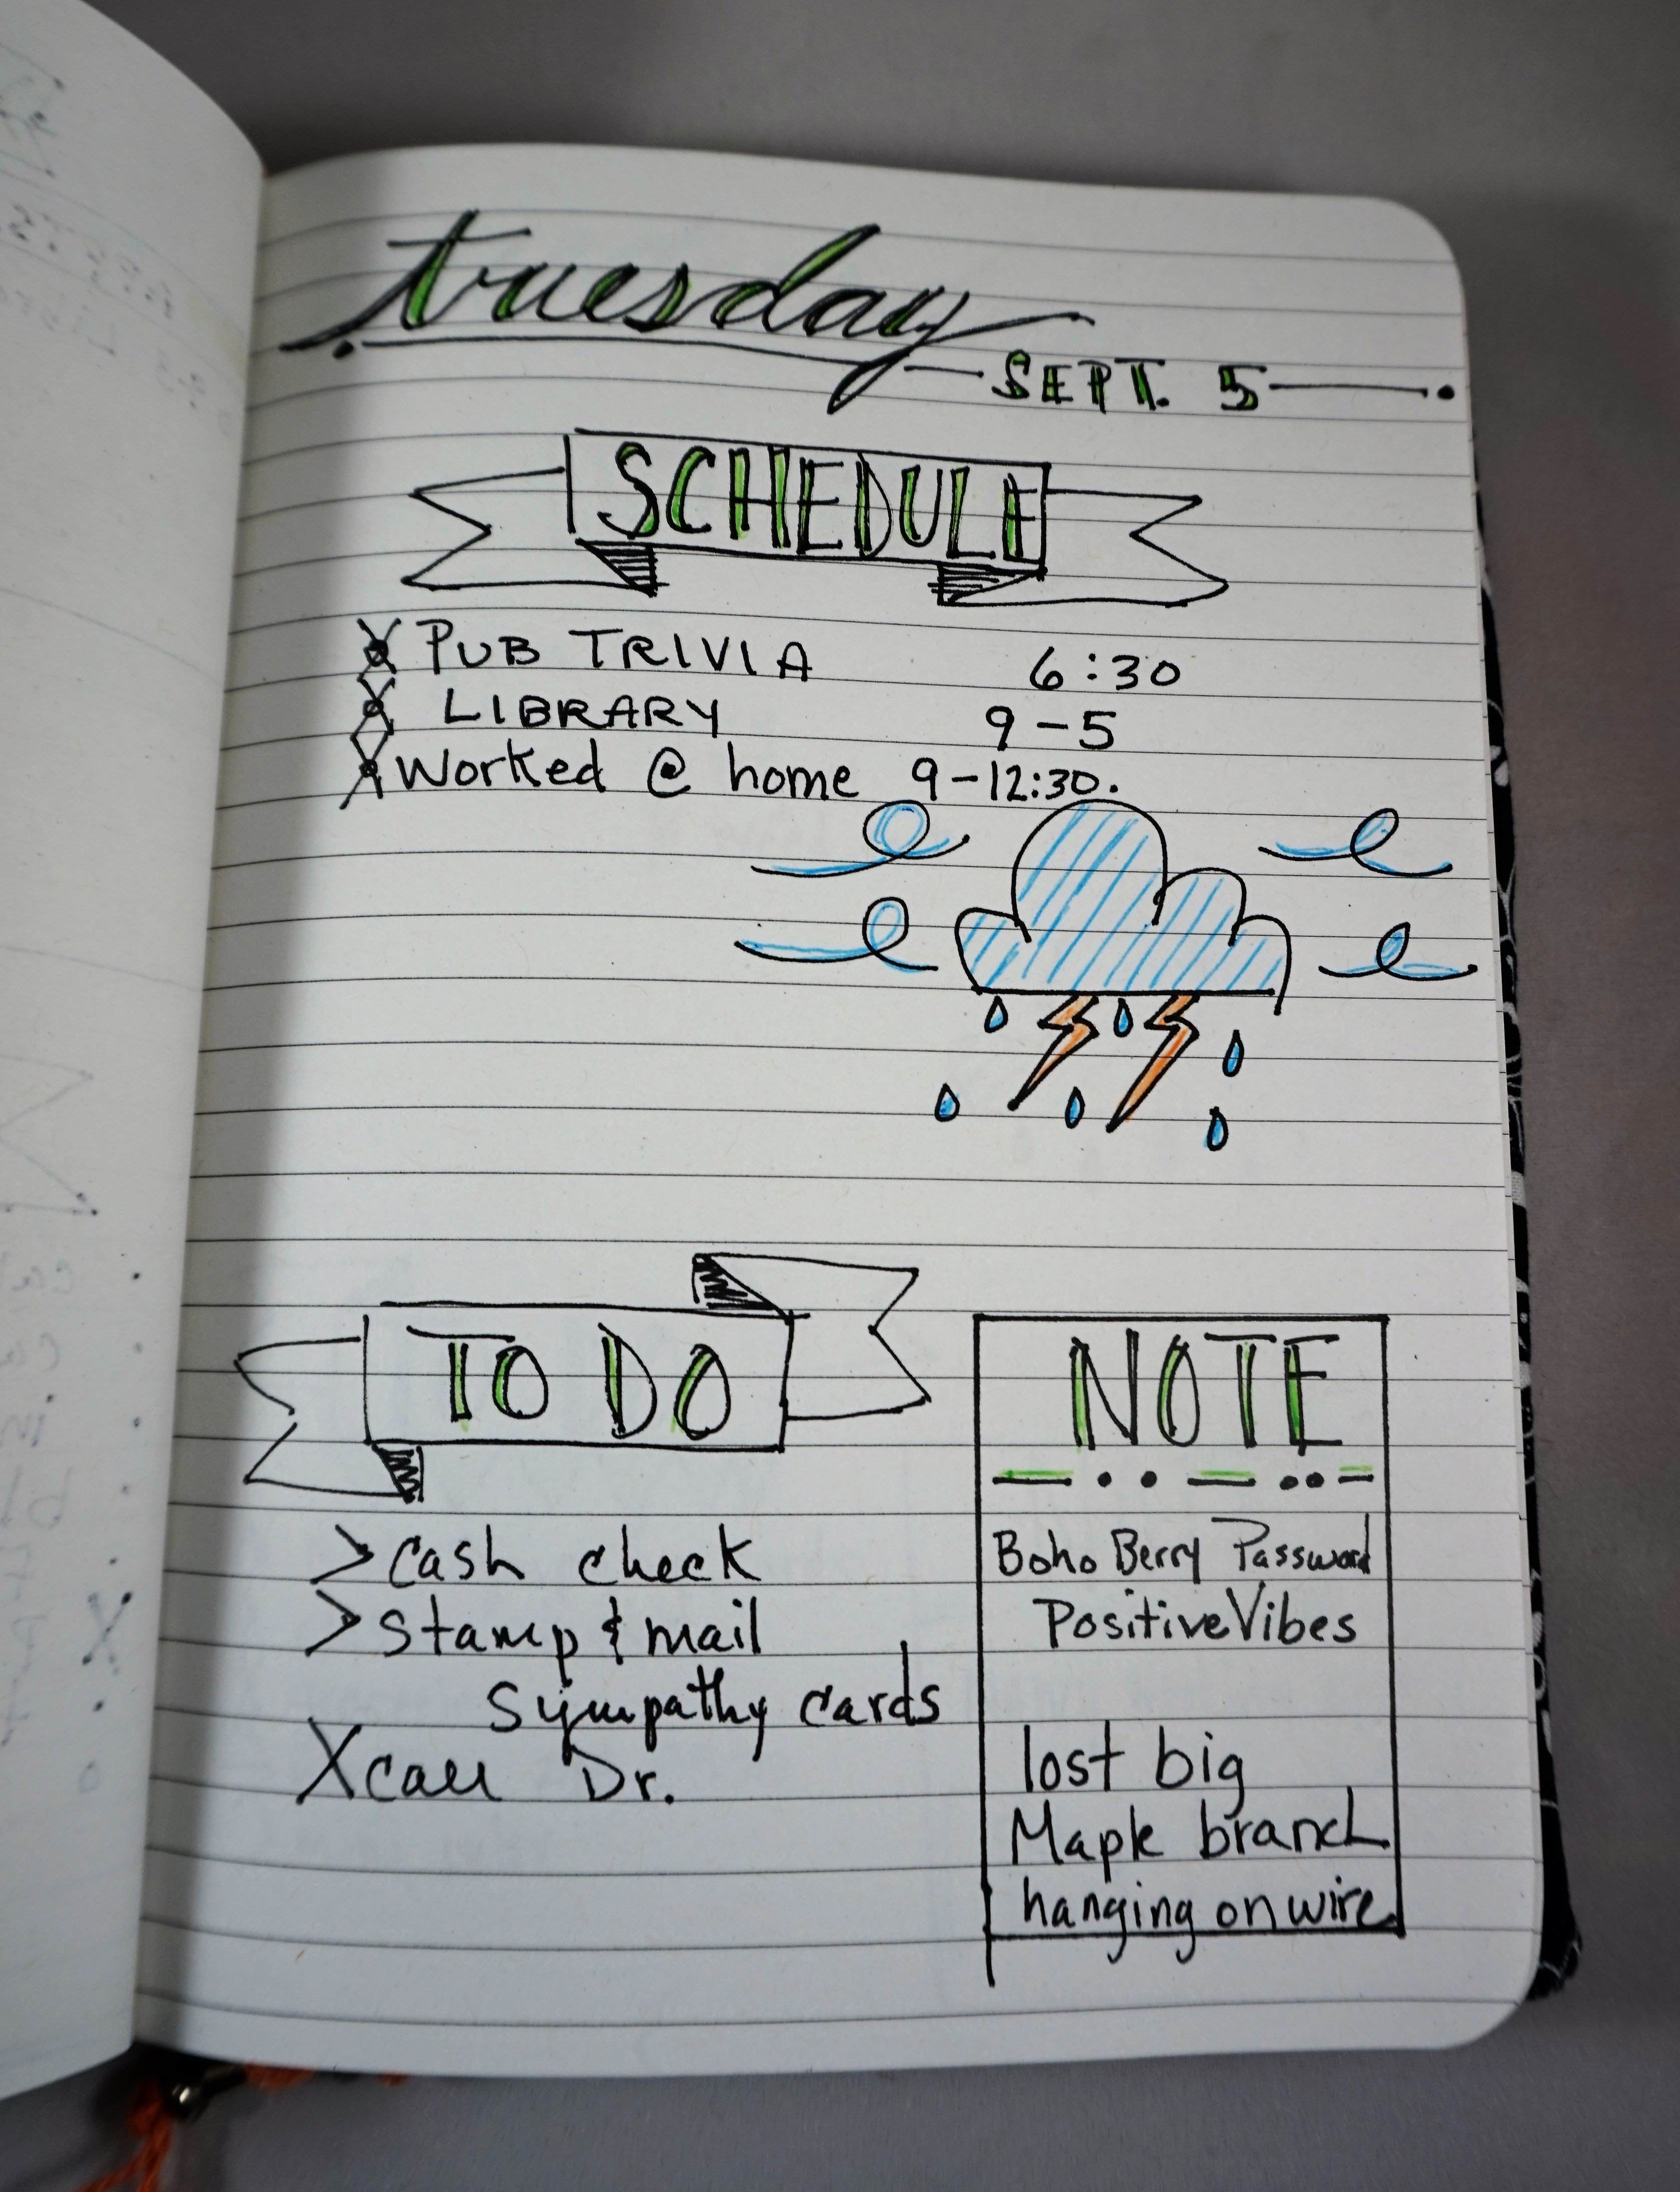 tuesday
SEPT. 5
SCHEDULE
X PUB TRIVIA 6:30
X LIBRARY 9-5
X Worked @ home 9-12:30.
TO DO
> cash check
> stamp & mail
sympathy cards
X call Dr.
NOTE
Boho Berry Password
PositiveVibes
lost big
Maple branch
hanging on wire